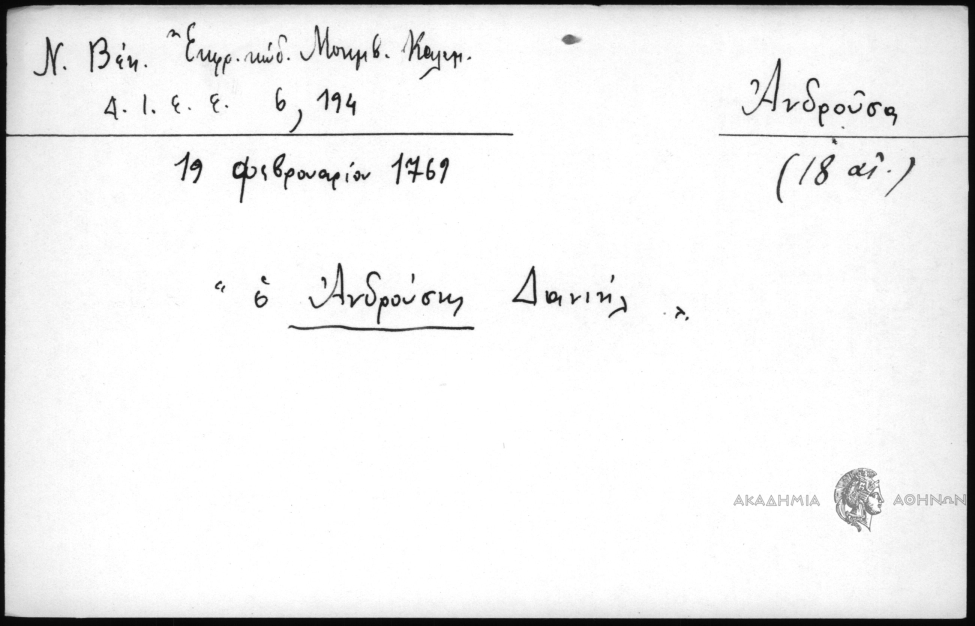 Ν. Βέη. Ἐκφρ. κώδ. Μονεμβ. Καλαμ.
Δ. Ι. Ε. Ε. 6, 194
Ἀνδροῦσα
(18 αἰ.)
19 Φεβρουαρίου 1769
"ὁ Ἀνδρούσης Δανιήλ".
ΑΚΑΔΗΜΙΑ ΑΘΗΝΩΝ